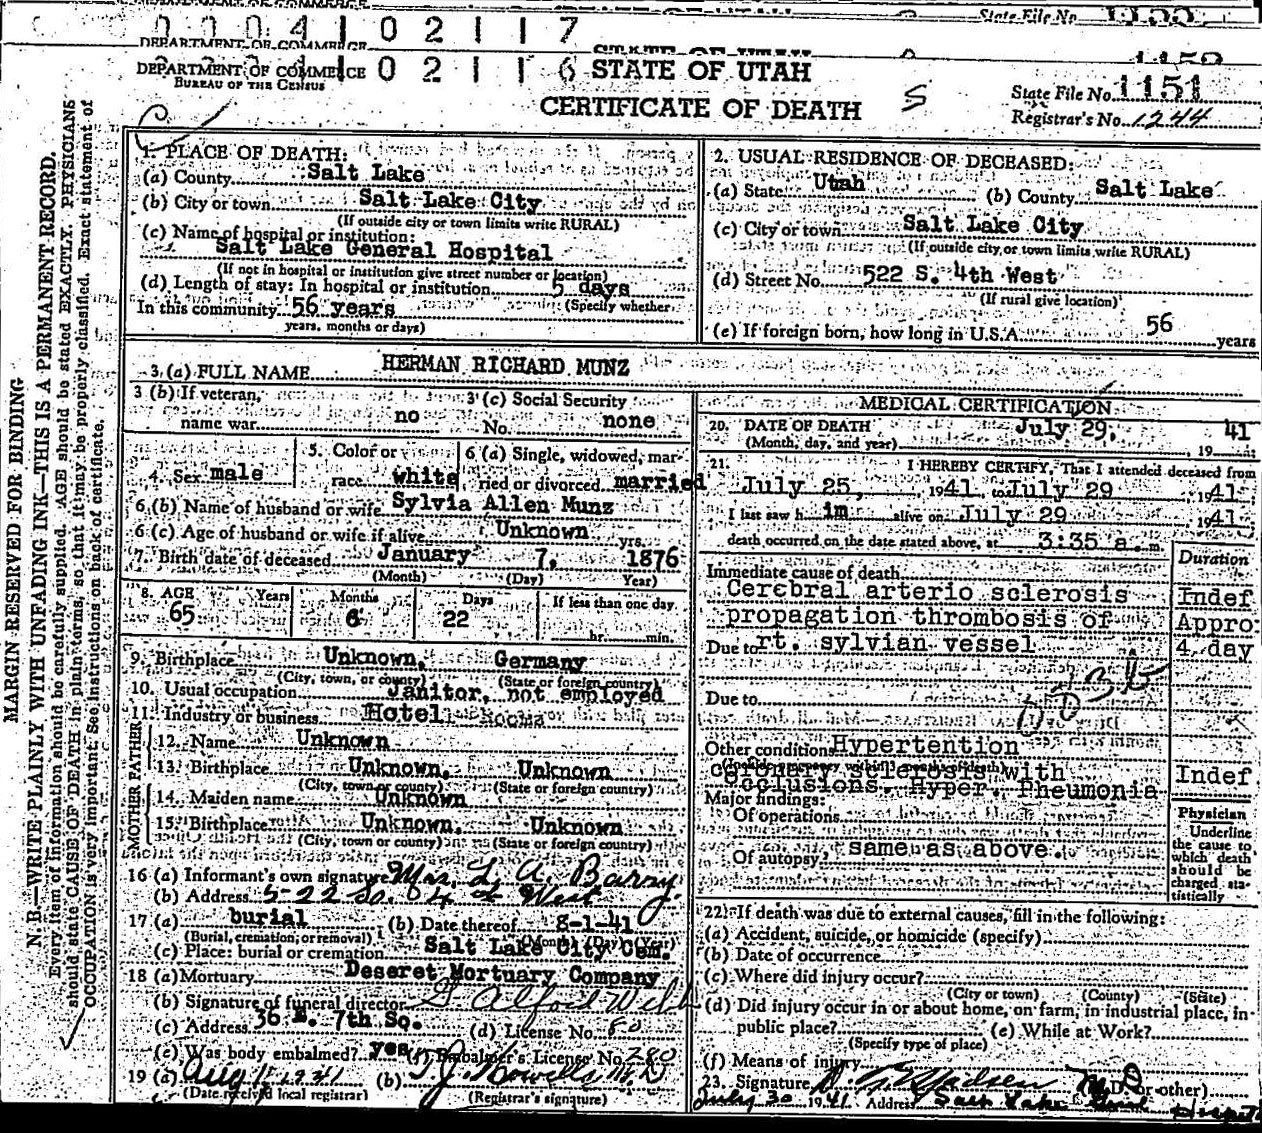 State File No.
0 0 0 4 1 0 2 1 1 7
DEPARTMENT OF COMMERCE
0 4 1 0 2 1 1 6
DEPARTMENT OF COMMERCE
BUREAU OF THE CENSUS
STATE OF UTAH
CERTIFICATE OF DEATH
S
State File No. 1151
Registrar's No. 1244
MARGIN RESERVED FOR BINDING
N. B.—WRITE PLAINLY WITH UNFADING INK—THIS IS A PERMANENT RECORD.
Every item of information should be carefully supplied. AGE should be stated EXACTLY. PHYSICIANS
should state CAUSE OF DEATH in plain terms, so that it may be properly classified. Exact statement of
OCCUPATION is very important. See instructions on back of certificate.
1. PLACE OF DEATH:
(a) County Salt Lake
(b) City or town Salt Lake City
(If outside city or town limits write RURAL)
(c) Name of hospital or institution:
Salt Lake General Hospital
(If not in hospital or institution give street number or location)
(d) Length of stay: In hospital or institution 5 days
In this community 56 years (Specify whether
years, months or days)
2. USUAL RESIDENCE OF DECEASED:
(a) State Utah (b) County Salt Lake
(c) City or town Salt Lake City
(If outside city or town limits write RURAL)
(d) Street No. 522 S. 4th West
(If rural give location)
(e) If foreign born, how long in U.S.A. 56 years
3. (a) FULL NAME HERMAN RICHARD MUNZ
3 (b) If veteran, name war no
3 (c) Social Security No. none
4. Sex male
5. Color or race white
6 (a) Single, widowed, married or divorced married
6 (b) Name of husband or wife Sylvia Allen Munz
6 (c) Age of husband or wife if alive Unknown yrs.
7. Birth date of deceased January 7, 1876
(Month) (Day) Year)
8. AGE Years Months Days If less than one day
65 6 22 hr. min.
9. Birthplace Unknown, Germany
(City, town, or county) (State or foreign country)
10. Usual occupation Janitor, not employed
11. Industry or business Hotel
FATHER
12. Name Unknown
13. Birthplace Unknown, Unknown
(City, town or county) (State or foreign country)
MOTHER
14. Maiden name Unknown
15. Birthplace Unknown, Unknown
(City, town or county) (State or foreign country)
16 (a) Informant's own signature Mrs. L. A. Barry
(b) Address 522 So. 4th West
17 (a) burial (b) Date thereof 8-1-41
(Burial, cremation, or removal) (Month) (Day) (Year)
(c) Place: burial or cremation Salt Lake City Cem.
18 (a) Mortuary Deseret Mortuary Company
(b) Signature of funeral director
(c) Address 36 E. 7th So. (d) License No. 80
(e) Was body embalmed? yes (f) Embalmer's License No. 280
19 (a) Aug 1, 1941 (b) T J Howells M.D
(Date received local registrar) (Registrar's signature)
MEDICAL CERTIFICATION
20. DATE OF DEATH July 29, 41
(Month, day, and year) 19
21. I HEREBY CERTIFY, That I attended deceased from
July 25, 1941 to July 29 1941
I last saw him alive on July 29 1941
death occurred on the date stated above, at 3:35 a.m.
Duration
Immediate cause of death
Cerebral arterio sclerosis Indef
propagation thrombosis of Appro:
Due to rt. sylvian vessel 4 day
Due to
Other conditions Hypertention
(Include pregnancy within 3 months of death)
coronary sclerosis with Indef
occlusions. Hyper. Pheumonia
Major findings:
Of operations
Of autopsy same as above.
Physician
Underline
the cause to
which death
should be
charged statistically
22. If death was due to external causes, fill in the following:
(a) Accident, suicide, or homicide (specify)
(b) Date of occurrence
(c) Where did injury occur?
(City or town) (County) (State)
(d) Did injury occur in or about home, on farm, in industrial place, in
public place? (e) While at Work?
(Specify type of place)
(f) Means of injury
23. Signature Madsen M D (M.D. or other)
July 30 1941 Address Salt Lake Genl Hospital